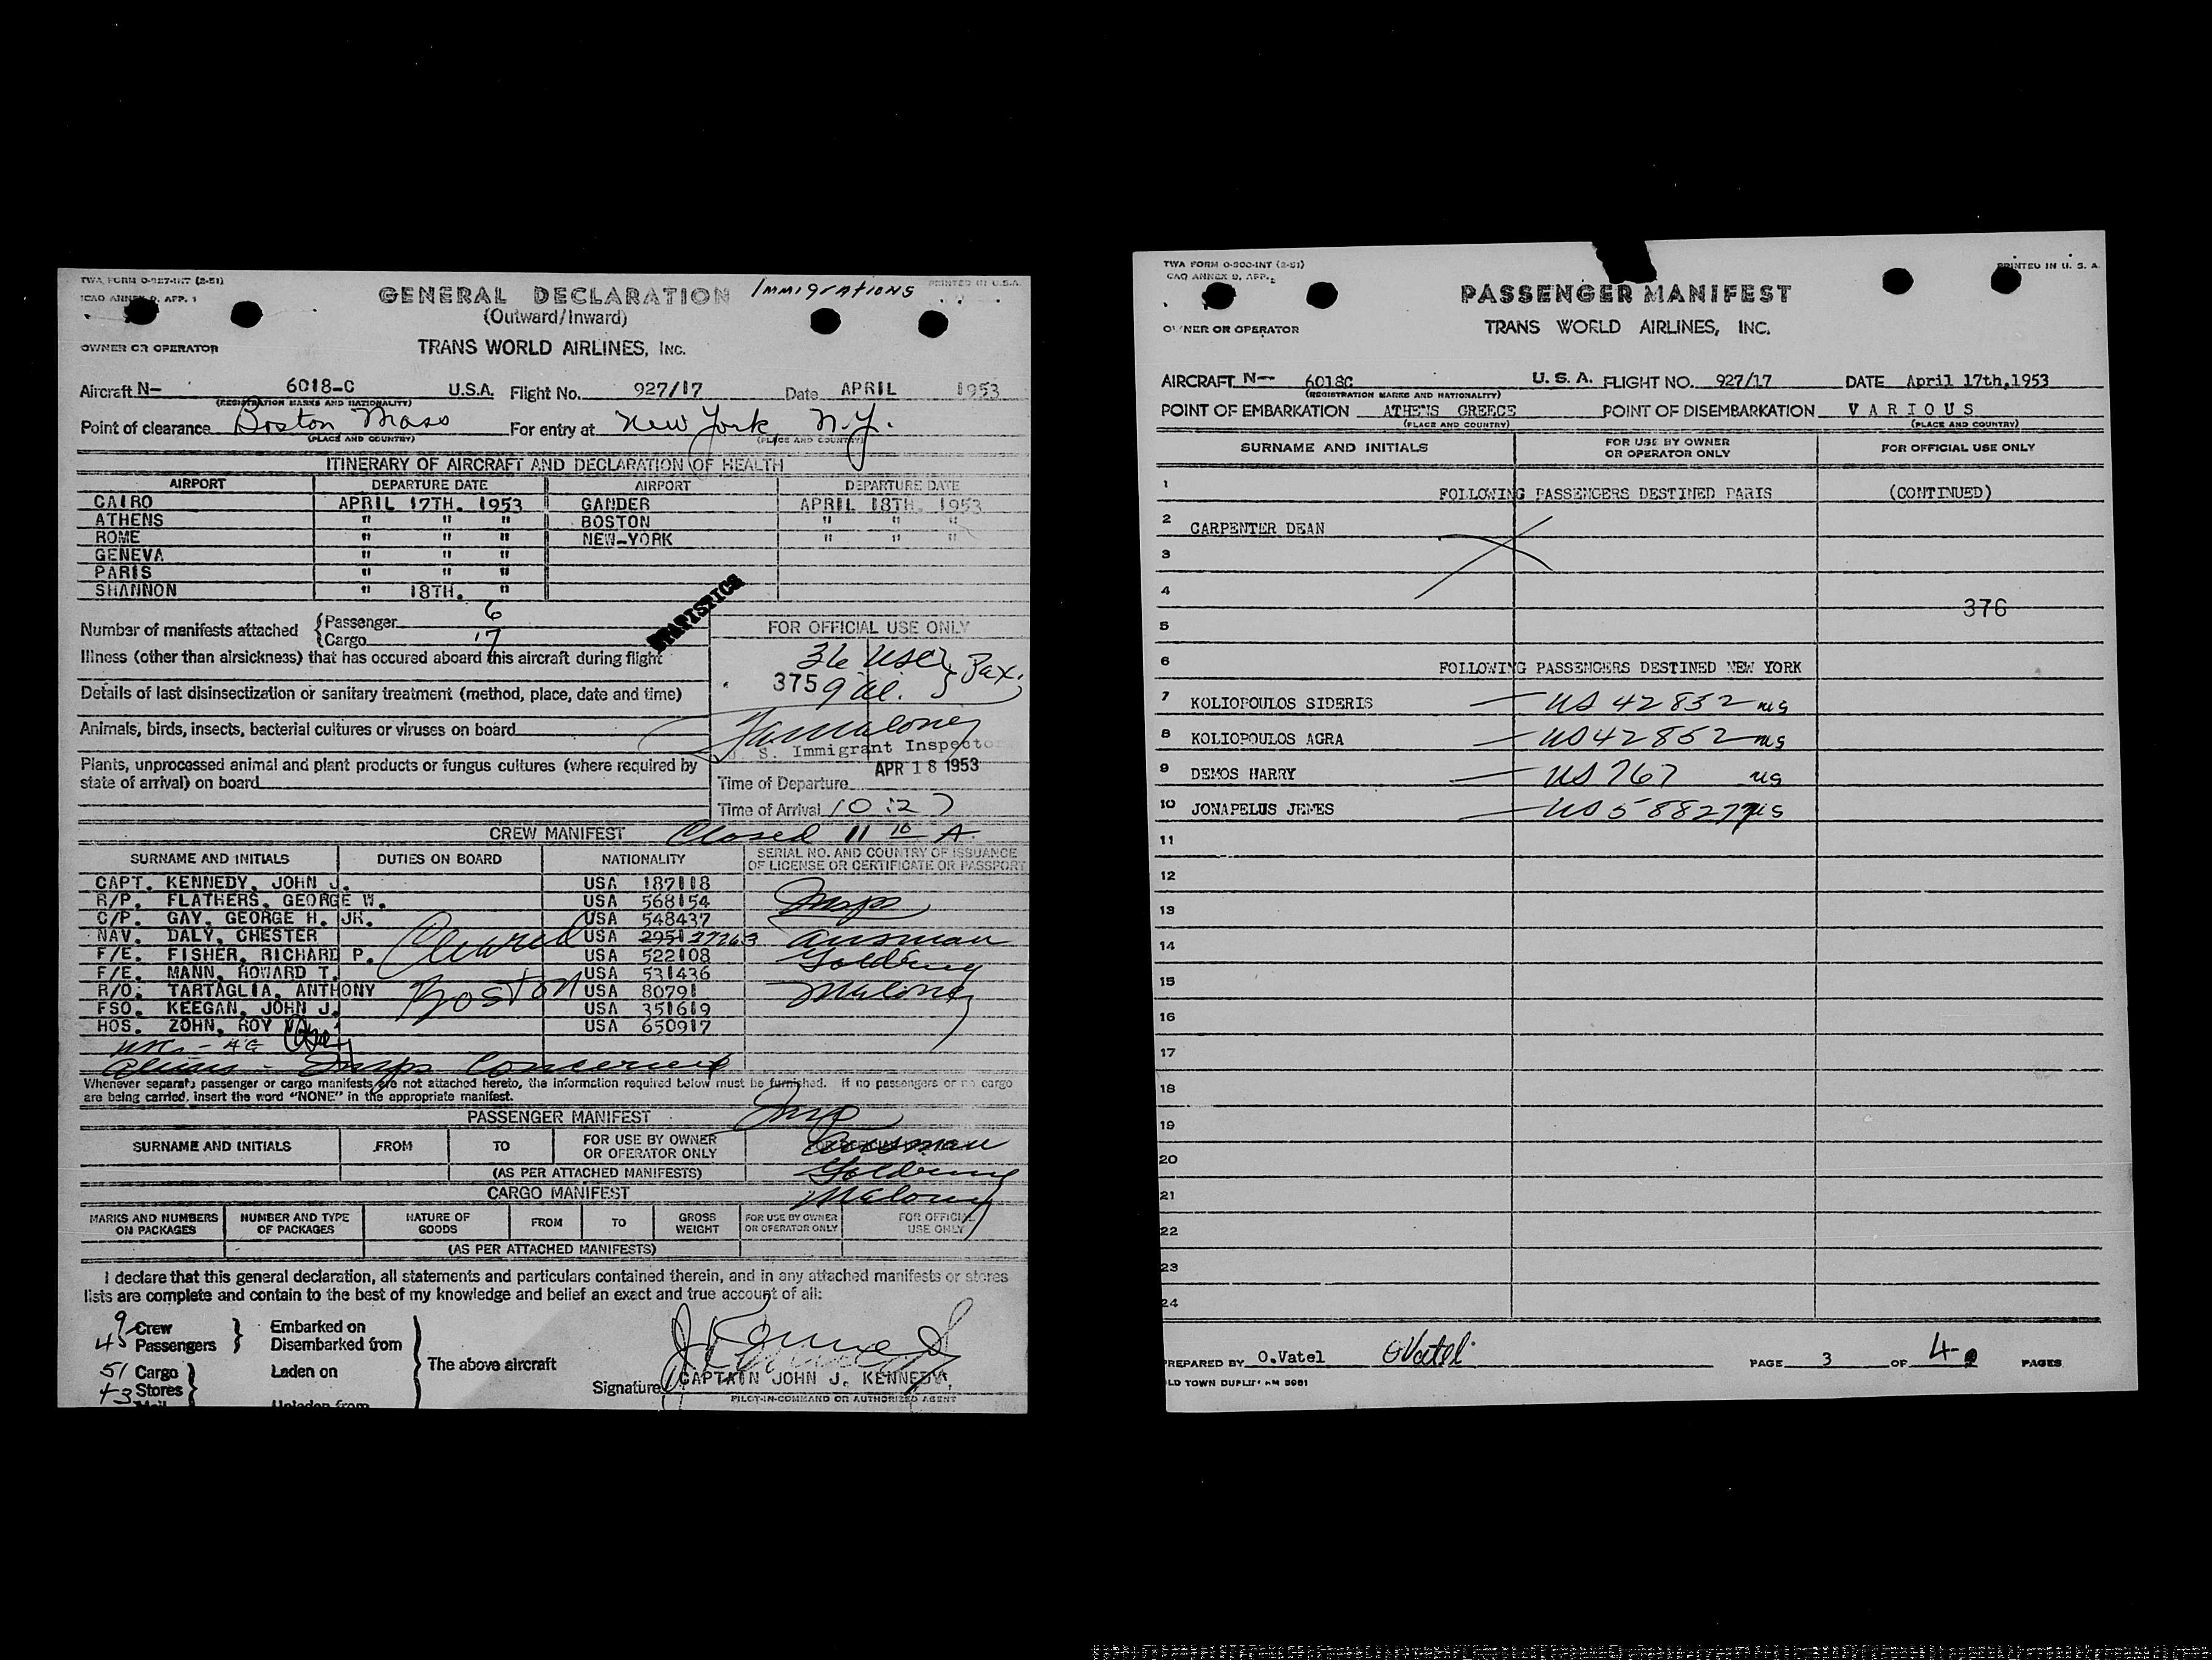 TWA FORM O-927-INT (2-51)
ICAO ANNEX 9, APP. 1
GENERAL DECLARATION
Immigrations
PRINTED IN U.S.A.
(Outward/Inward)
OWNER OR OPERATOR
TRANS WORLD AIRLINES, INC.
Aircraft N- 6018-C U.S.A. Flight No. 927/17 Date APRIL 1953
(REGISTRATION MARKS AND NATIONALITY)
Point of clearance Boston Mass For entry at New York, N.Y.
(PLACE AND COUNTRY) (PLACE AND COUNTRY)
ITINERARY OF AIRCRAFT AND DECLARATION OF HEALTH
AIRPORT DEPARTURE DATE AIRPORT DEPARTURE DATE
CAIRO APRIL 17TH. 1953 GANDER APRIL 18TH. 1953
ATHENS " " " BOSTON " " "
ROME " " " NEW-YORK " " "
GENEVA " " "
PARIS " " "
SHANNON " 18TH. "
STATISTICS
Number of manifests attached { Passenger 6
Cargo 17
FOR OFFICIAL USE ONLY
Illness (other than airsickness) that has occured aboard this aircraft during flight
36 USC } Pax.
375 9 al.
Details of last disinsectization or sanitary treatment (method, place, date and time)
Maloney
Animals, birds, insects, bacterial cultures or viruses on board
U. S. Immigrant Inspector
Plants, unprocessed animal and plant products or fungus cultures (where required by
state of arrival) on board
APR 18 1953
Time of Departure
Time of Arrival 10:27
CREW MANIFEST Closed 11 10 A.
SURNAME AND INITIALS DUTIES ON BOARD NATIONALITY SERIAL NO. AND COUNTRY OF ISSUANCE
OF LICENSE OR CERTIFICATE OR PASSPORT
CAPT. KENNEDY, JOHN J. USA 187118
R/P. FLATHERS, GEORGE W. USA 568154
Insps
C/P. GAY, GEORGE H. JR. USA 548437
NAV. DALY, CHESTER Cleared USA 2951 27263 Ausman
F/E. FISHER, RICHARD P. USA 522108 Goldberg
F/E. MANN, HOWARD T. USA 531436
R/O. TARTAGLIA, ANTHONY Boston USA 80791 Maloney
FSO. KEEGAN, JOHN J. USA 351619
HOS. ZOHN, ROY USA 650917
Aliens - Insps Concerned
Whenever separate passenger or cargo manifests are not attached hereto, the information required below must be furnished. If no passengers or no cargo
are being carried, insert the word "NONE" in the appropriate manifest.
PASSENGER MANIFEST Insp
SURNAME AND INITIALS FROM TO FOR USE BY OWNER
OR OPERATOR ONLY FOR OFFICIAL USE ONLY
Ausman
(AS PER ATTACHED MANIFESTS) Goldberg
CARGO MANIFEST Maloney
MARKS AND NUMBERS
ON PACKAGES NUMBER AND TYPE
OF PACKAGES NATURE OF
GOODS FROM TO GROSS
WEIGHT FOR USE BY OWNER
OR OPERATOR ONLY FOR OFFICIAL
USE ONLY
(AS PER ATTACHED MANIFESTS)
I declare that this general declaration, all statements and particulars contained therein, and in any attached manifests or stores
lists are complete and contain to the best of my knowledge and belief an exact and true account of all:
9 Crew Embarked on
45 Passengers } Disembarked from
The above aircraft
51 Cargo Laden on
43 Stores
Mail Unladen from
J Kennedy
Signature CAPTAIN JOHN J. KENNEDY.
PILOT-IN-COMMAND OR AUTHORIZED AGENT
TWA FORM O-300-INT (2-51)
CAO ANNEX 9, APP.
PRINTED IN U. S. A.
PASSENGER MANIFEST
OWNER OR OPERATOR
TRANS WORLD AIRLINES, INC.
AIRCRAFT N- 6018C U. S. A. FLIGHT NO. 927/17 DATE April 17th,1953
(REGISTRATION MARKS AND NATIONALITY)
POINT OF EMBARKATION ATHENS GREECE POINT OF DISEMBARKATION V A R I O U S
(PLACE AND COUNTRY) (PLACE AND COUNTRY)
SURNAME AND INITIALS FOR USE BY OWNER
OR OPERATOR ONLY FOR OFFICIAL USE ONLY
1 FOLLOWING PASSENGERS DESTINED PARIS (CONTINUED)
2 CARPENTER DEAN
3
4
376
5
6 FOLLOWING PASSENGERS DESTINED NEW YORK
7 KOLIOPOULOS SIDERIS — US 42852 ms
8 KOLIOPOULOS AGRA — US 42852 ms
9 DEMOS HARRY — US 767 us
10 JONAPELUS JEMES — US 58827 us
11
12
13
14
15
16
17
18
19
20
21
22
23
24
PREPARED BY O.Vatel OVatel PAGE 3 OF 4 PAGES